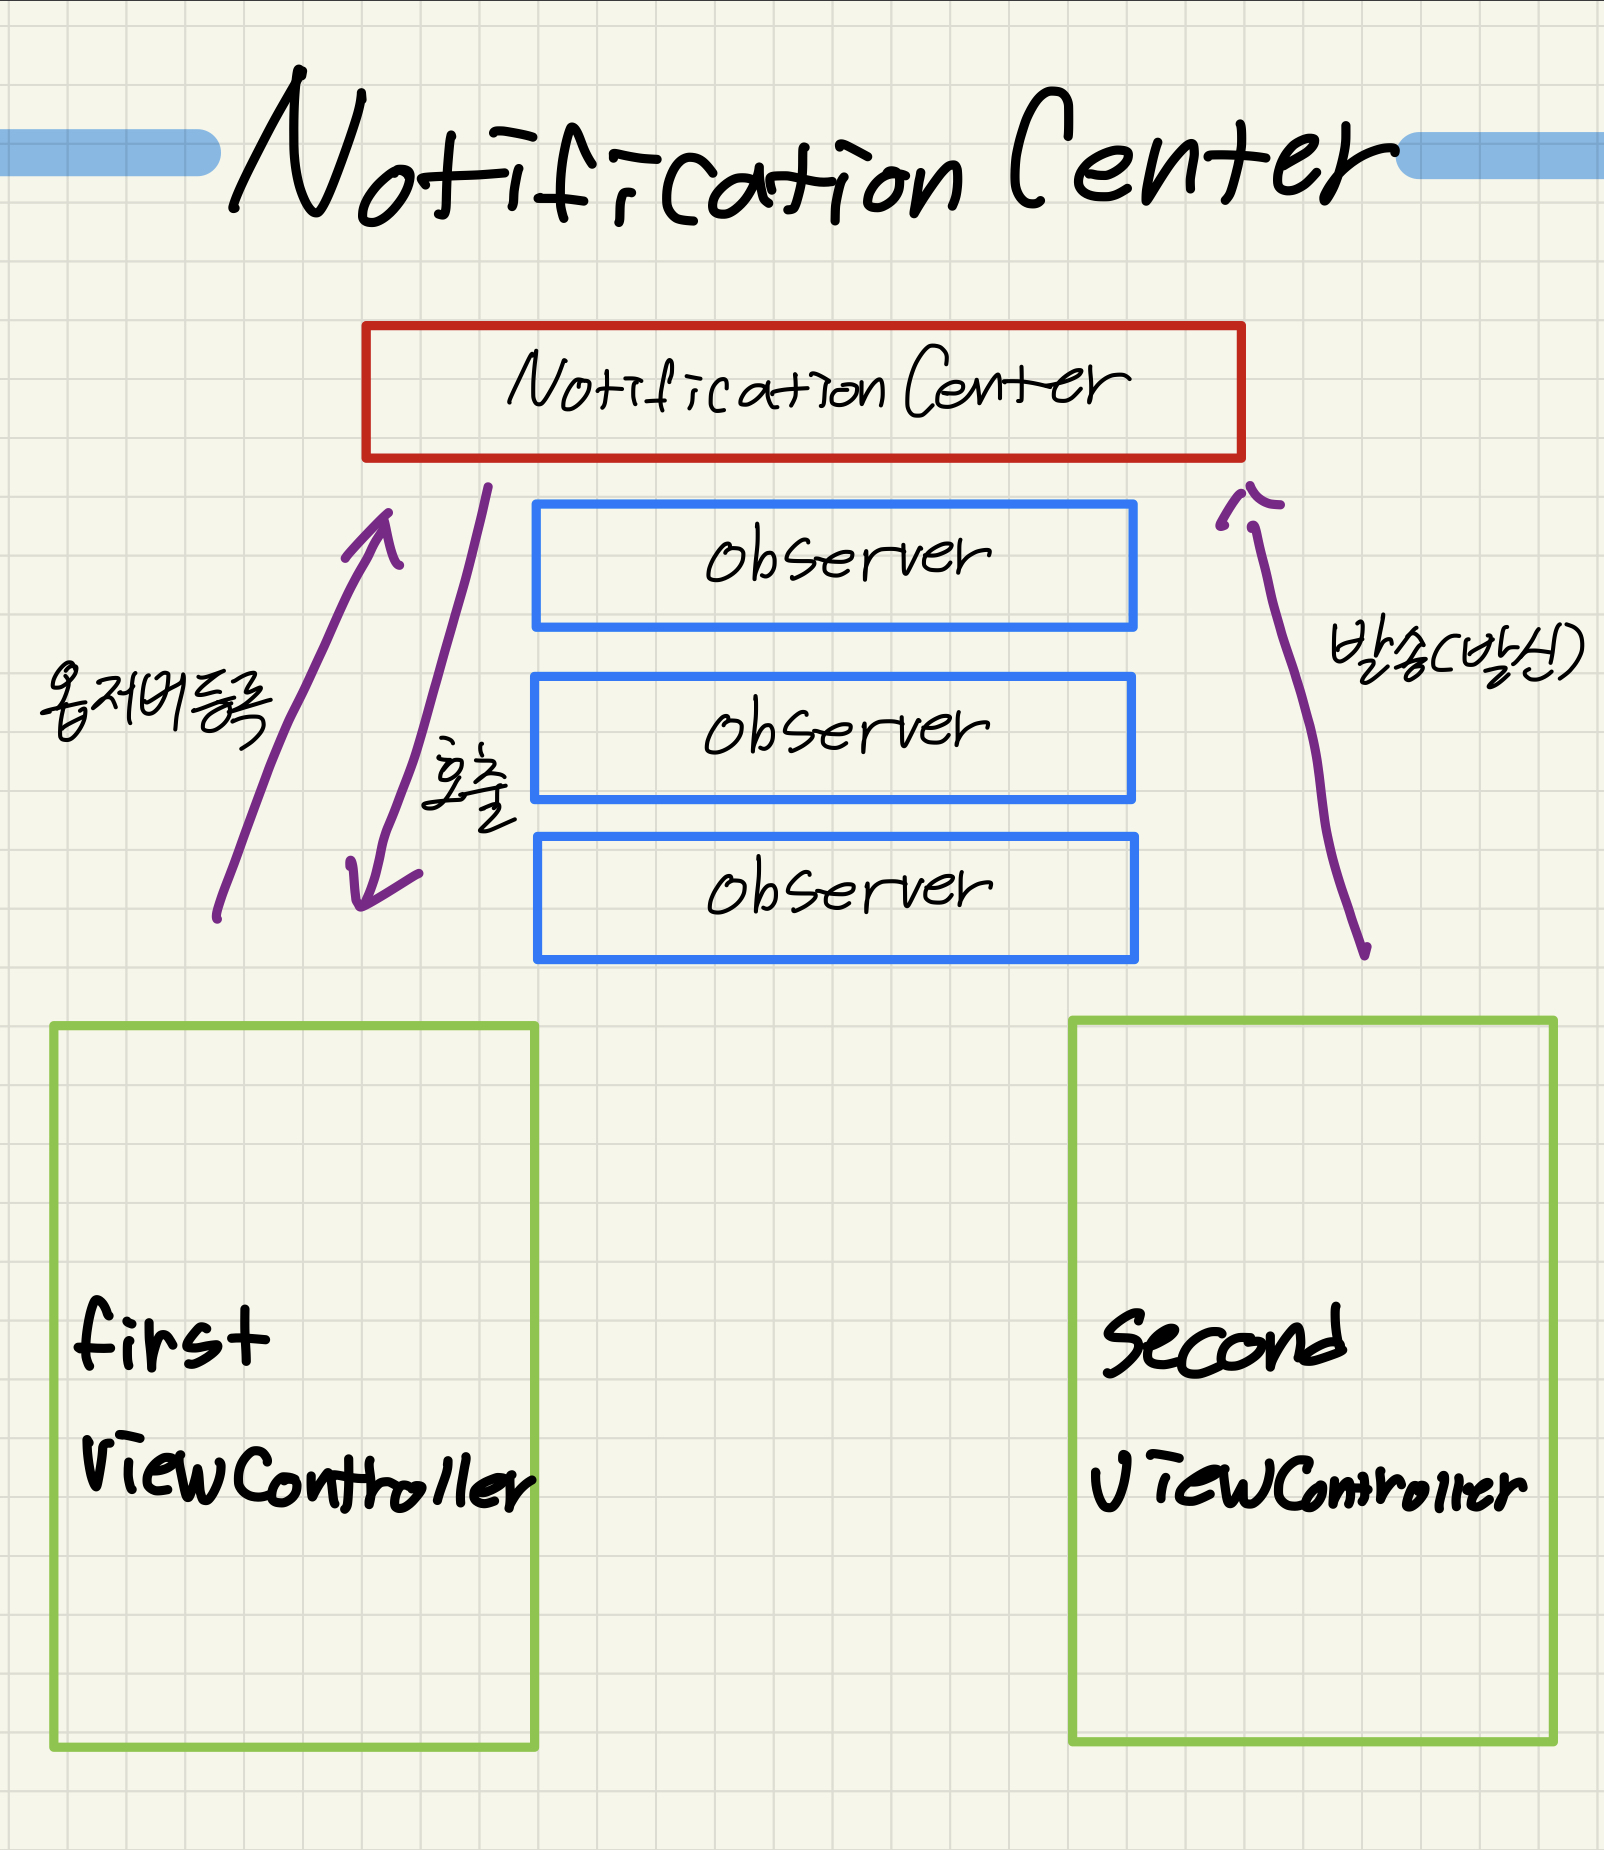 Notification Center
Notification Center
observer
발송(발신)
옵저버등록
observer
호출
observer
first
ViewController
Second
ViewController